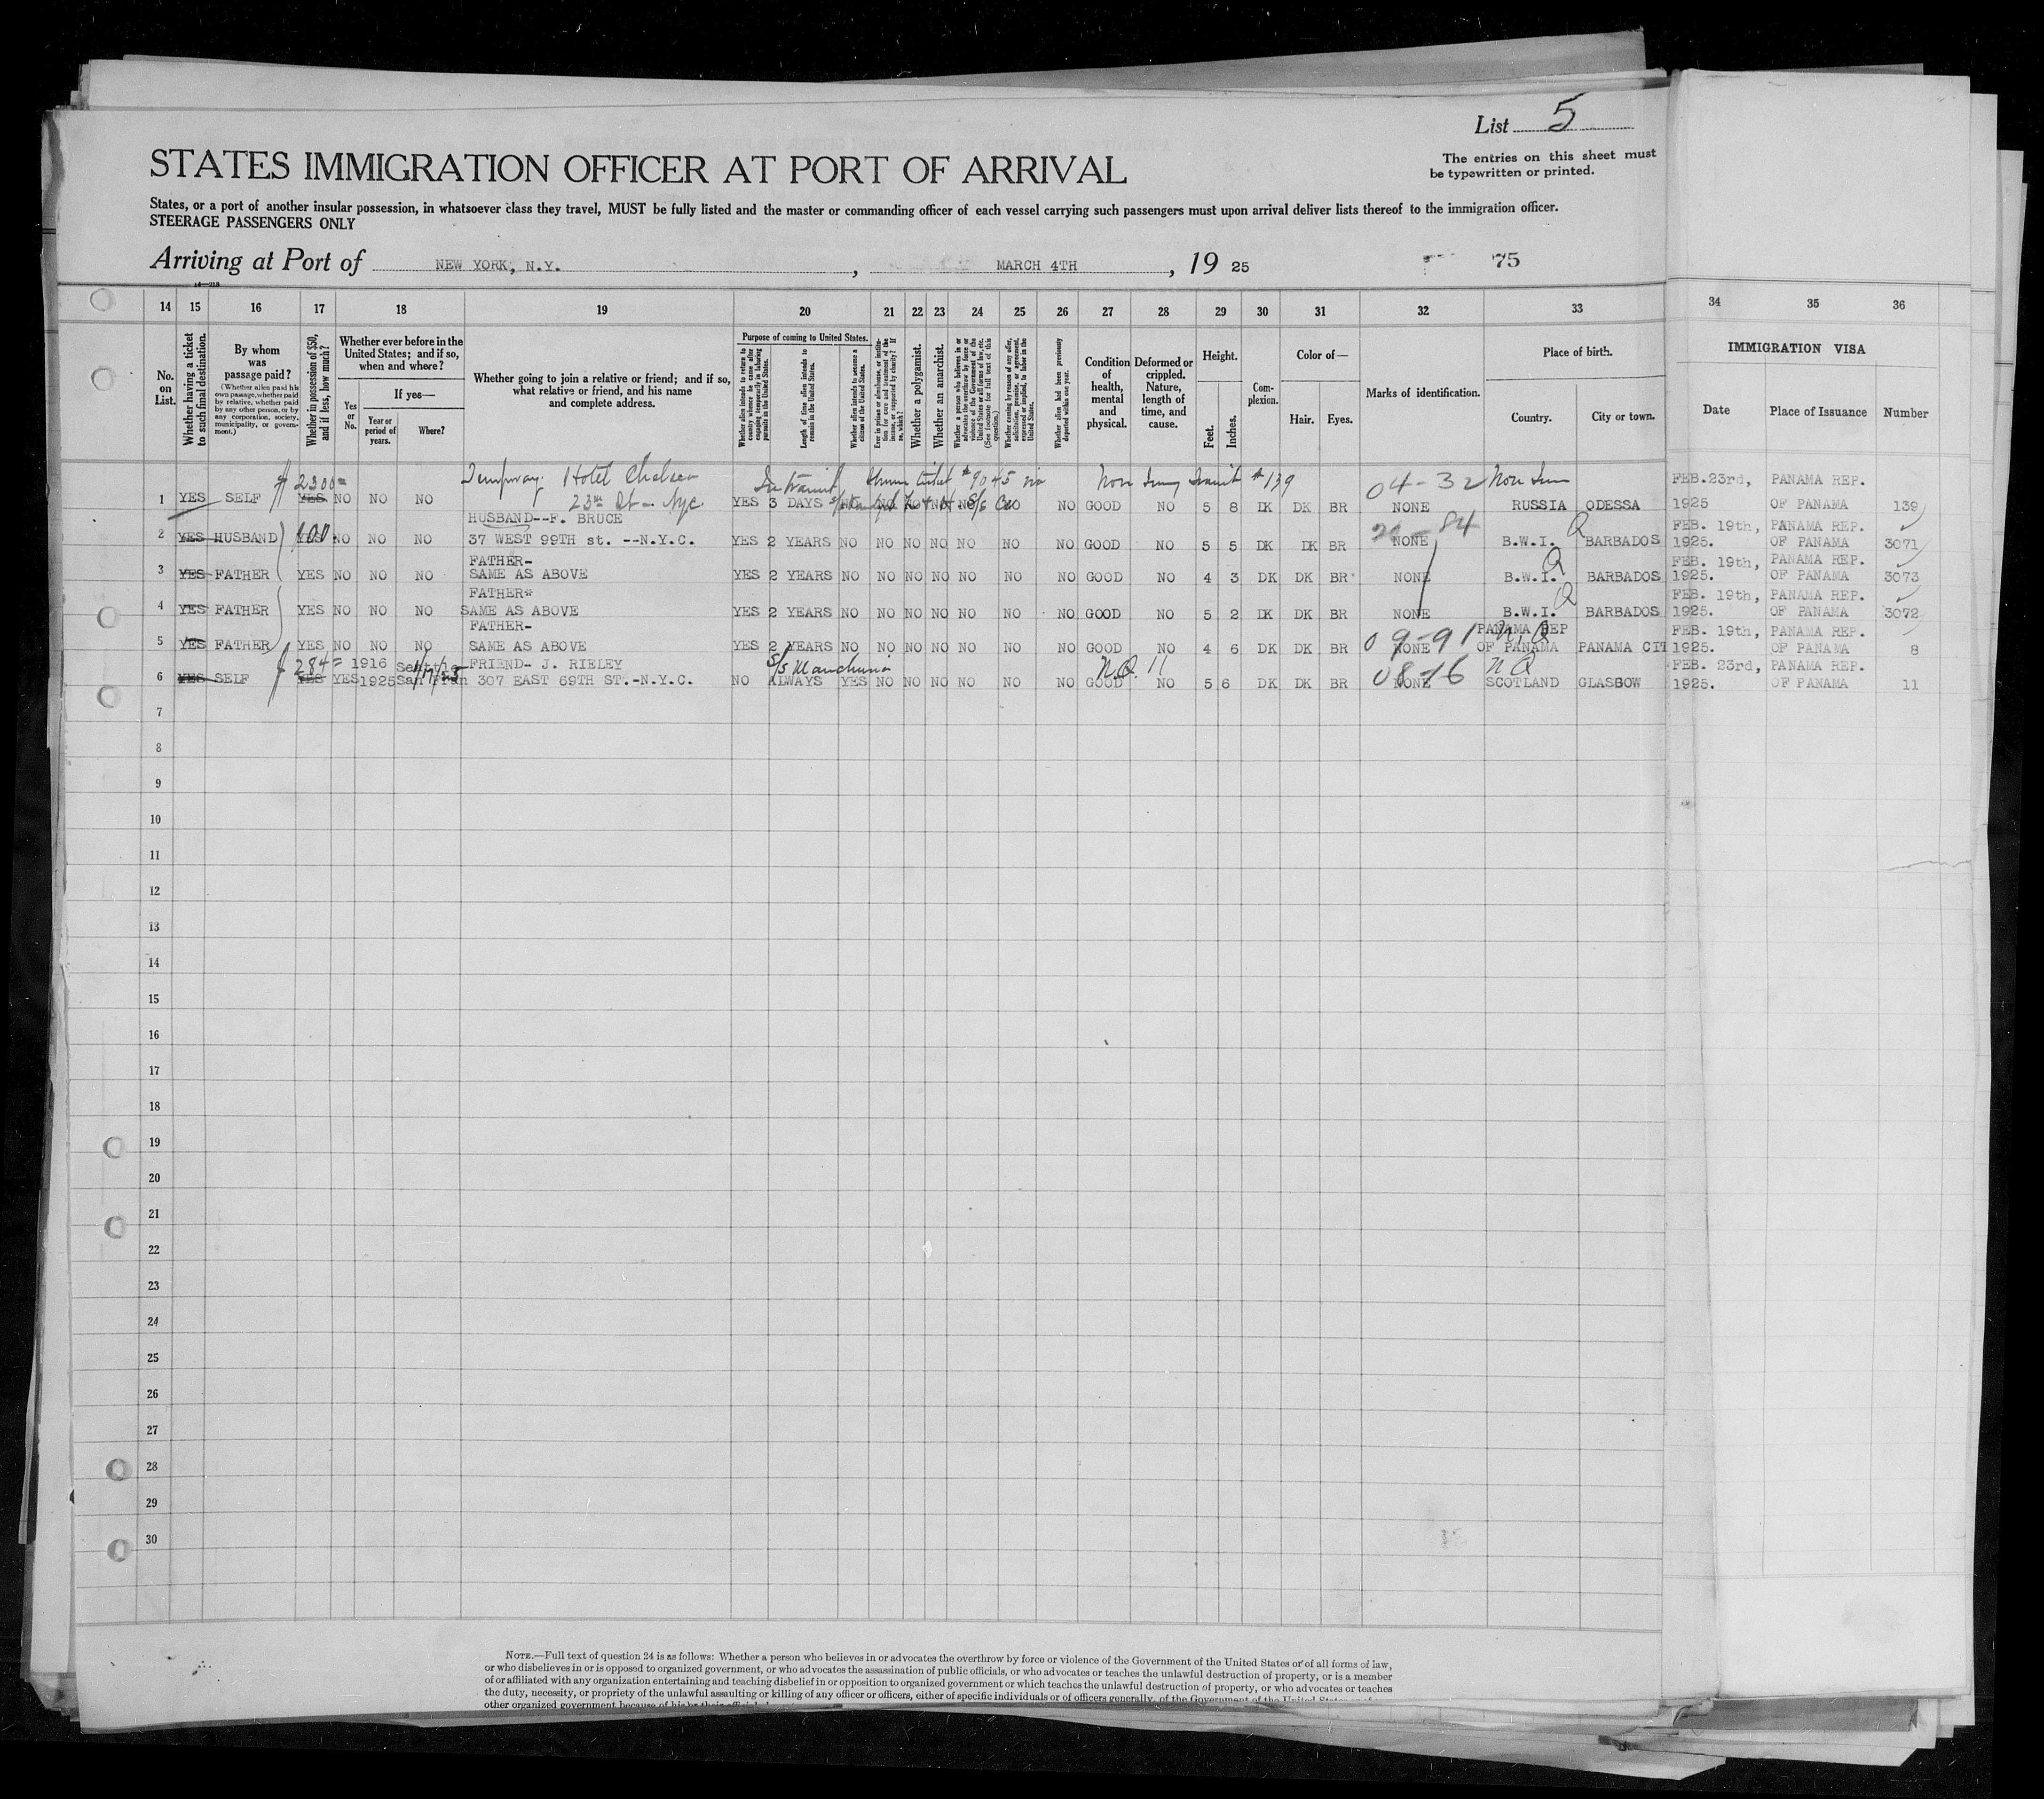 List 5
The entries on this sheet must
be typewritten or printed.
STATES IMMIGRATION OFFICER AT PORT OF ARRIVAL
States, or a port of another insular possession, in whatsoever class they travel, MUST be fully listed and the master or commanding officer of each vessel carrying such passengers must upon arrival deliver lists thereof to the immigration officer.
STEERAGE PASSENGERS ONLY
Arriving at Port of NEW YORK, N.Y., MARCH 4TH, 19 25 75
14 15 16 17 18 19 20 21 22 23 24 25 26 27 28 29 30 31 32 33 34 35 36
No. on List.
Whether having a ticket to such final destination.
By whom was passage paid?
(Whether alien paid his own passage, whether paid by relative, whether paid by any other person, or by any corporation, society, municipality, or government.)
Whether in possession of $50, and if less, how much?
Whether ever before in the United States; and if so, when and where?
Yes or No.
If yes—
Year or period of years.
Where?
Whether going to join a relative or friend; and if so, what relative or friend, and his name and complete address.
Purpose of coming to United States.
Whether alien intends to return to country whence he came after engaging temporarily in laboring pursuits in the United States.
Length of time alien intends to remain in the United States.
Whether alien intends to become a citizen of the United States.
Ever in prison or almshouse, or institution for care and treatment of the insane, or supported by charity? If so, which?
Whether a polygamist.
Whether an anarchist.
Whether a person who believes in or advocates the overthrow by force or violence of the Government of the United States or all forms of law, etc. (See footnote for full text of this question.)
Whether coming by reason of any offer, solicitation, promise, or agreement, expressed or implied, to labor in the United States.
Whether alien had been previously deported within one year.
Condition of health, mental and physical.
Deformed or crippled. Nature, length of time, and cause.
Height.
Feet. Inches.
Complexion.
Color of—
Hair. Eyes.
Marks of identification.
Place of birth.
Country. City or town.
IMMIGRATION VISA
Date Place of Issuance Number
$2300= Hotel Chelsea In transit #9045 Non Imm transit #139 04-32 Non Imm FEB.23rd, PANAMA REP.
1 YES SELF YES NO NO NO 23rd St - NYC YES 3 DAYS NO GOOD NO 5 8 DK DK BR NONE RUSSIA ODESSA 1925 OF PANAMA 139
HUSBAND--F. BRUCE 84 Q FEB. 19th, PANAMA REP.
2 YES HUSBAND 100 YES NO NO NO 37 WEST 99TH st. --N.Y.C. YES 2 YEARS NO NO NO NO NO NO NO GOOD NO 5 5 DK DK BR NONE B.W.I. BARBADOS 1925. OF PANAMA 3071
FATHER- Q FEB. 19th, PANAMA REP.
3 YES FATHER YES NO NO NO SAME AS ABOVE YES 2 YEARS NO NO NO NO NO NO NO GOOD NO 4 3 DK DK BR NONE B.W.I. BARBADOS 1925. OF PANAMA 3073
FATHER* Q FEB. 19th, PANAMA REP.
4 YES FATHER YES NO NO NO SAME AS ABOVE YES 2 YEARS NO NO NO NO NO NO NO GOOD NO 5 2 DK DK BR NONE B.W.I. BARBADOS 1925. OF PANAMA 3072
FATHER- 09-91 PANAMA REP N.Q FEB. 19th, PANAMA REP.
5 YES FATHER YES NO NO NO SAME AS ABOVE YES 2 YEARS NO NO NO NO NO NO NO GOOD NO 4 6 DK DK BR NONE OF PANAMA PANAMA CIT 1925. OF PANAMA 8
$284= 1916 Seattle FRIEND- J. RIBLEY S/S Manchuria N.Q. 11 08-16 NQ FEB. 23rd, PANAMA REP.
6 YES SELF YES YES 1925 San Fran 307 EAST 69TH ST.-N.Y.C. NO ALWAYS YES NO NO NO NO NO NO GOOD NO 5 6 DK DK BR NONE SCOTLAND GLASBOW 1925. OF PANAMA 11
7
8
9
10
11
12
13
14
15
16
17
18
19
20
21
22
23
24
25
26
27
28
29
30
NOTE.—Full text of question 24 is as follows: Whether a person who believes in or advocates the overthrow by force or violence of the Government of the United States or of all forms of law,
or who disbelieves in or is opposed to organized government, or who advocates the assassination of public officials, or who advocates or teaches the unlawful destruction of property, or is a member
of or affiliated with any organization entertaining and teaching disbelief in or opposition to organized government or which teaches the unlawful destruction of property, or who advocates or teaches
the duty, necessity, or propriety of the unlawful assaulting or killing of any officer or officers, either of specific individuals or of officers generally, of the Government of the United States
other organized government because of his or their official